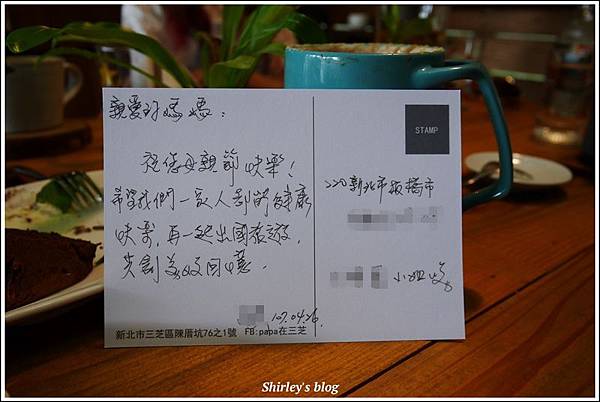 親愛的媽媽：
祝你母親節快樂！
希望我們一家人都能健康
快樂，再一起出國旅遊，
共創美好回憶。
107.04.26.
新北市三芝區陳厝坑76之1號 FB:papa在三芝
STAMP
220新北市板橋市
小姐收
Shirley's blog